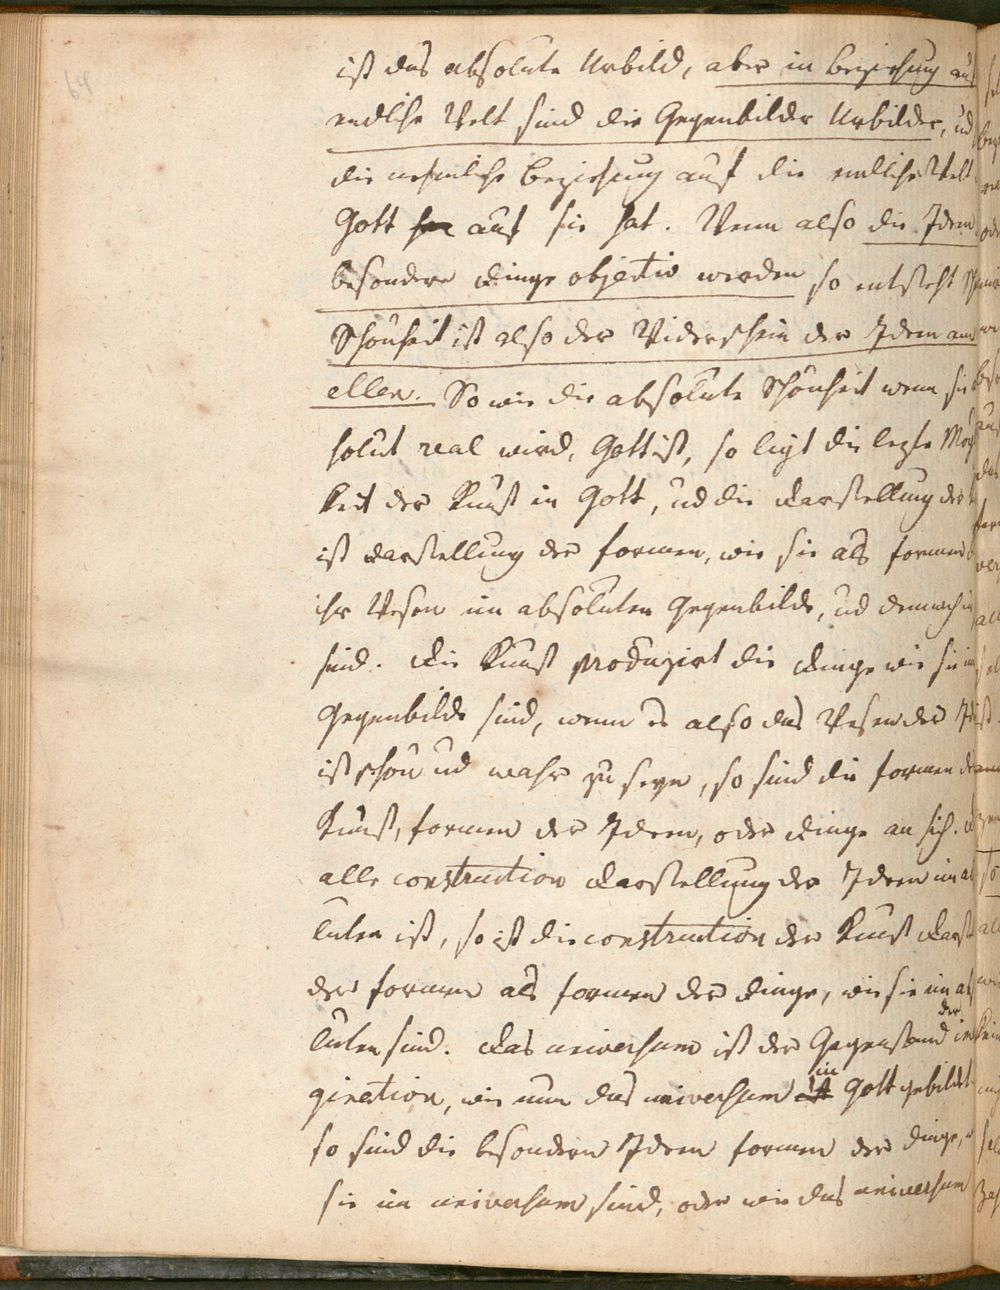 64
ist das absolute Urbild, aber in Beziehung auf
endliche Welt sind die Gegenbilder Urbilder, ud
die nehmliche Beziehung auf die endliche Welt
Gott auf sie hat. Wenn also die Ideen
besondere Dinge objectiv werden so entsteht
Schönheit ist also der Widerschein der Ideen am
ellen. So wie die absolute Schönheit wenn sie
solut real wird, Gott ist, so ligt die lezte Mög
keit der Kunst in Gott, ud die Darstellung der
ist Darstellung der formen, wie sie als formen
ihr Wesen im absoluten Gegenbilde, ud demnach
sind. Die Kunst produzirt die Dinge wie sie im
Gegenbilde sind, wenn es also das Wesen der
ist schön ud wahr zu seyn, so sind die formen der
Kunst, formen der Ideen, oder Dinge an sich.
alle construction Darstellung der Ideen im ab
luten ist, so ist die construction der Kunst Darst
der formen als formen der Dinge, wie sie im abs
luten sind. Das universum ist der Gegenstand der im
gination, wie nun das universum in Gott gebildet
so sind die besondern Ideen formen der Dinge,
sie im universum sind, oder wie das universum